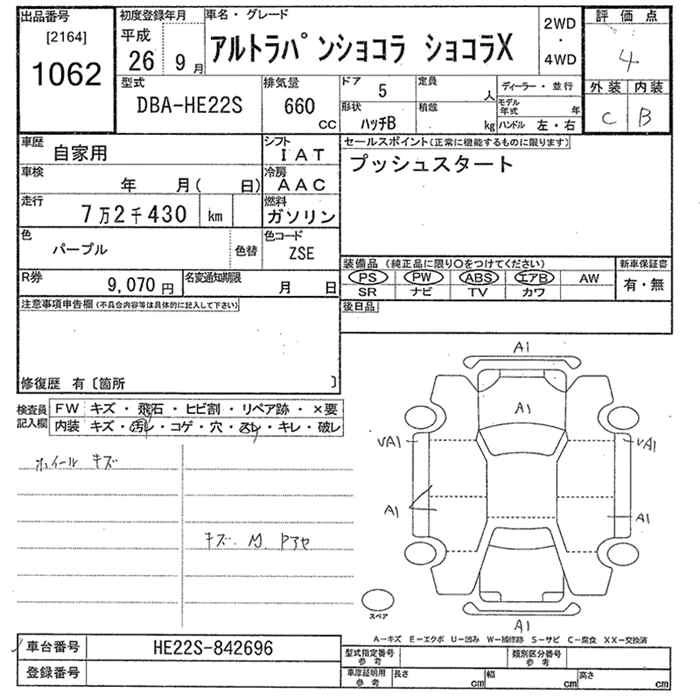 出品番号
[2164]
1062
初度登録年月
平成
26 9月
車名・グレード
アルトラパンショコラ ショコラX
2WD
・
4WD
評価点
4
外装 内装
C B
型式
DBA-HE22S
排気量
660
CC
ドア
5
形状
ハッチB
定員
人
積載
kg
ディーラー・並行
モデル年式
年
ハンドル 左・右
車歴
自家用
シフト
IAT
車検
年 月( 日)
冷房
AAC
走行
7万2千430 km
燃料
ガソリン
色
パープル
色替
色コード
ZSE
R券
9,070円
名変通知期限
月 日
セールスポイント(正常に機能するものに限ります)
プッシュスタート
装備品(純正品に限り○をつけてください)
PS PW ABS エアB AW
SR ナビ TV カワ
新車保証書
有・無
後日品
注意事項申告欄(不具合内容等は具体的に記入して下さい)
修復歴 有〔箇所 〕
検査員
記入欄
FW キズ・飛石・ヒビ割・リペア跡・×要
内装 キズ・汚レ・コゲ・穴・スレ・キレ・破レ
ホイール キズ
キズ. M. アセ
A1
A1
VA1
VA1
A1
A1
A1
スペア
A−キズ E−エクボ U−凹み W−補修跡 S−サビ C−腐食 XX−交換済
車台番号
HE22S-842696
登録番号
型式指定番号
参考
類別区分番号
参考
車庫証明用
参考
長さ
cm
幅
cm
高さ
cm